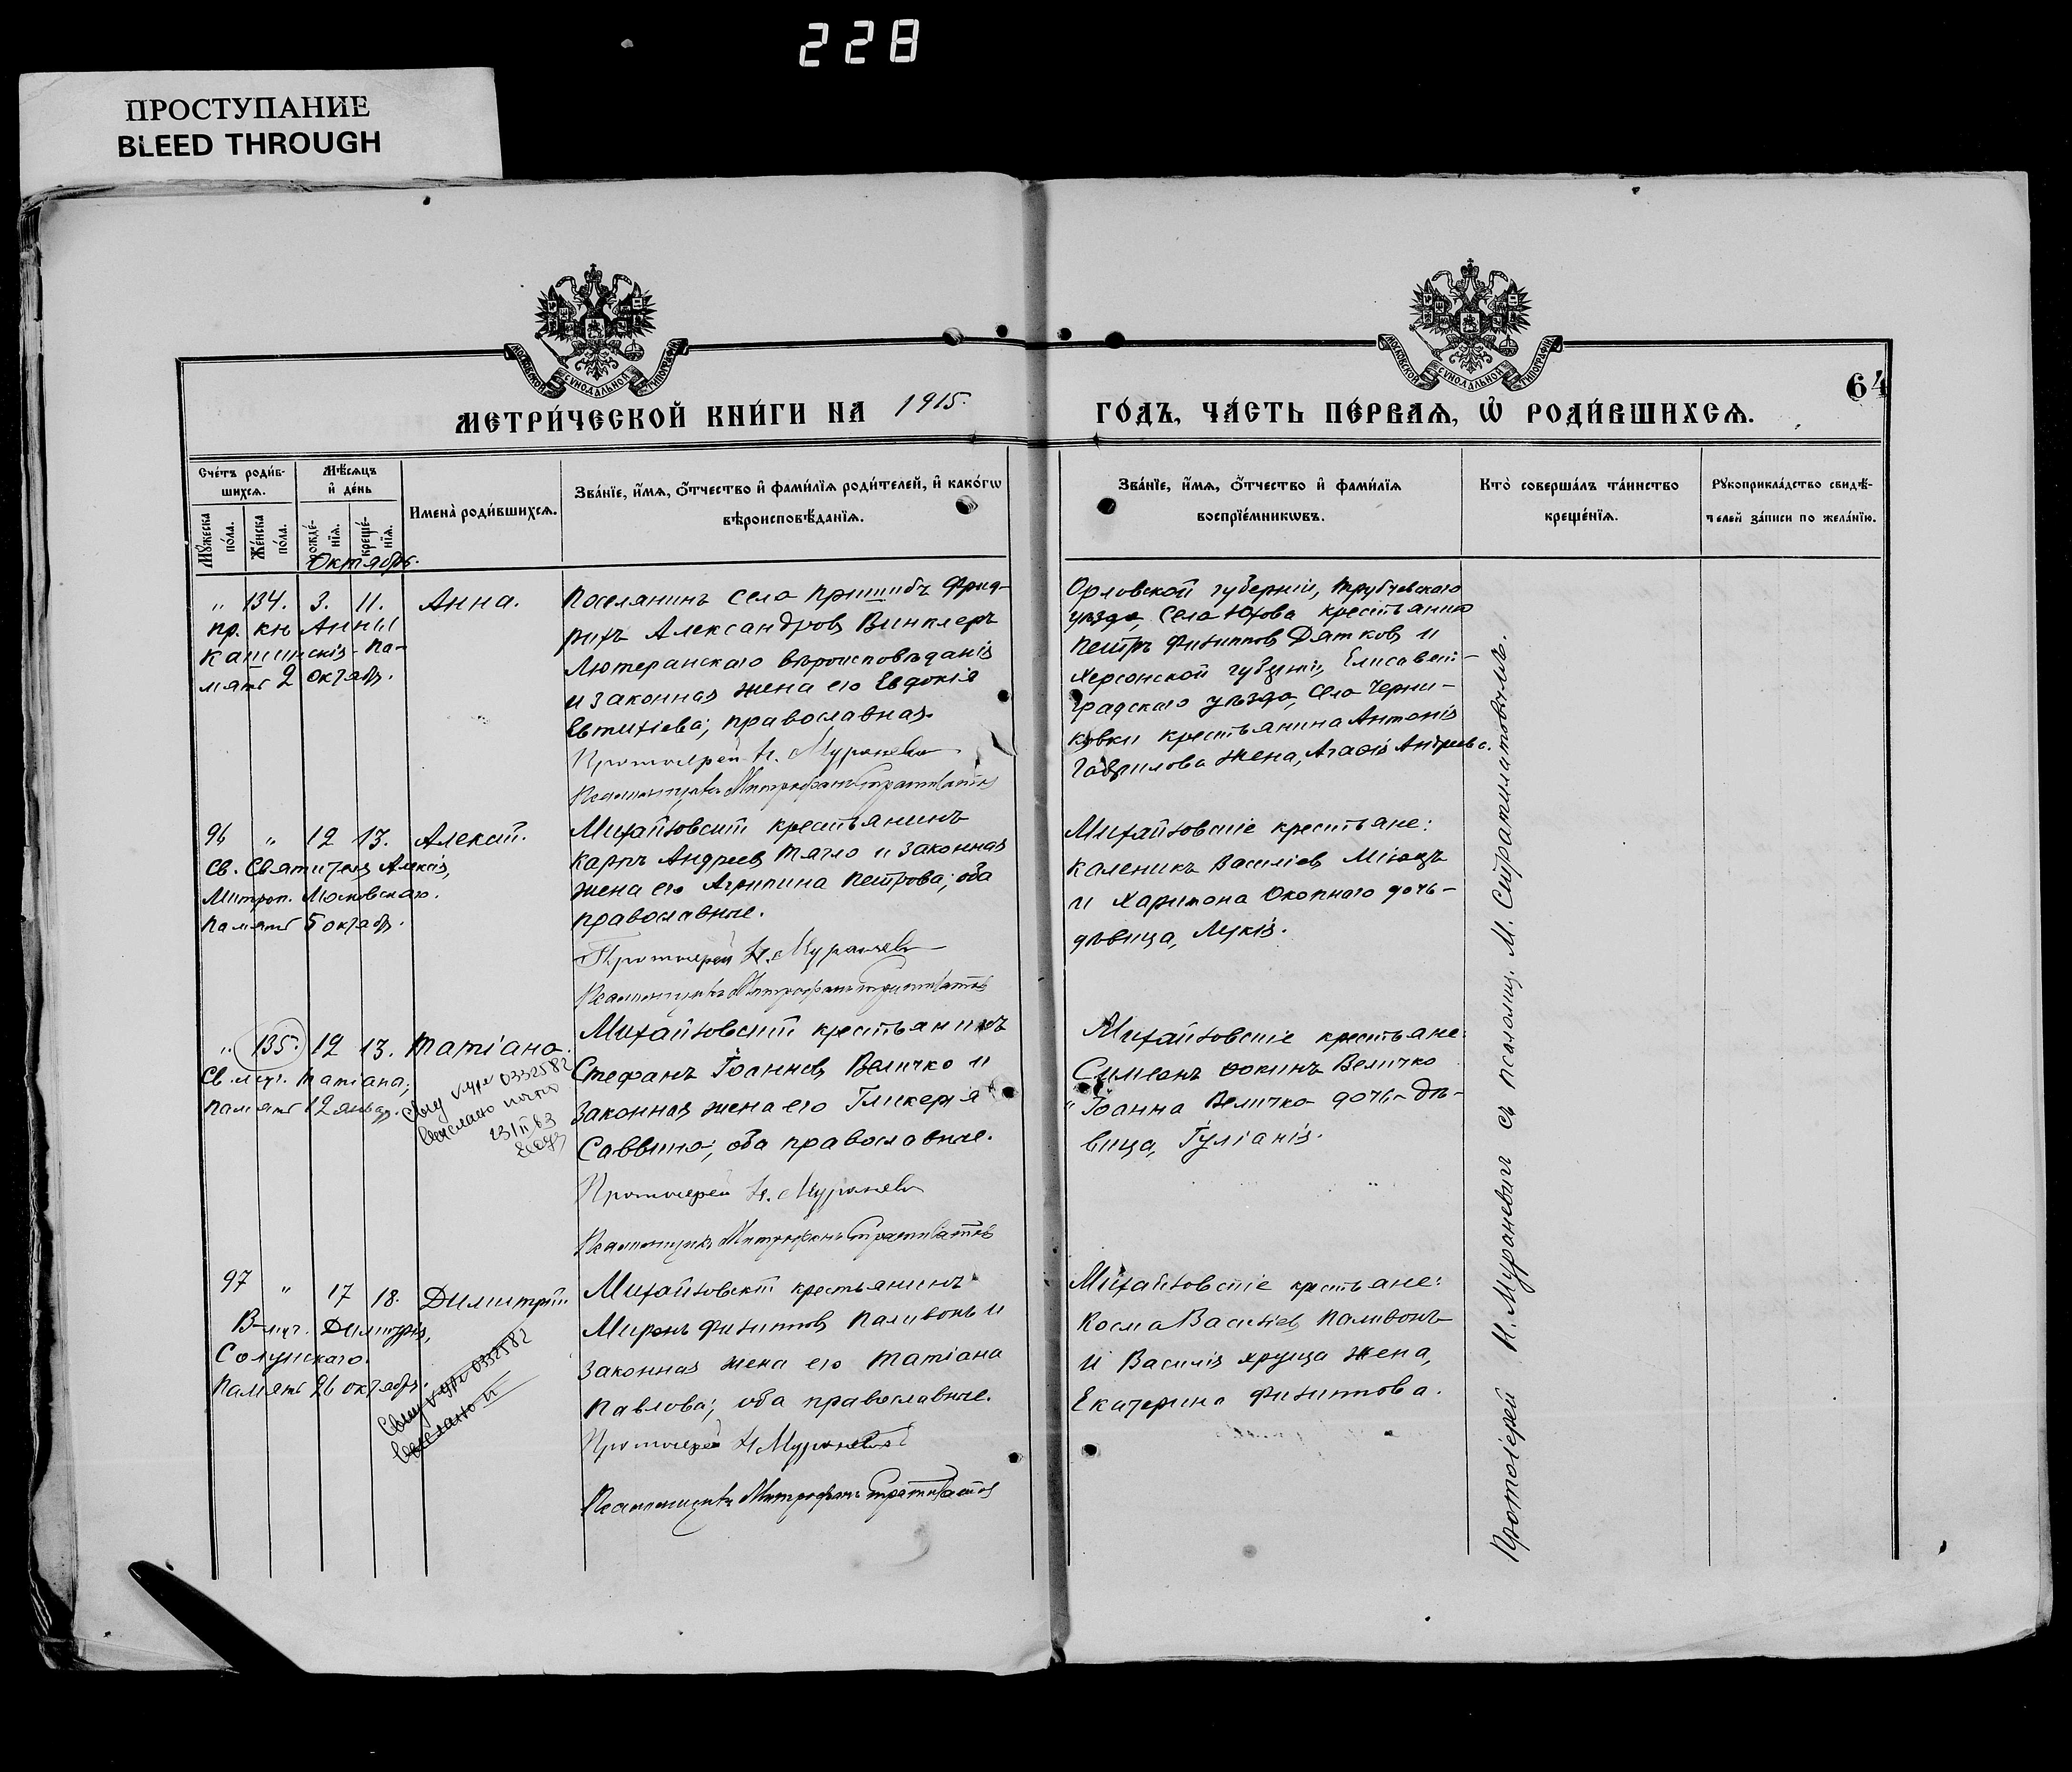 228
ПРОСТУПАНИЕ
BLEED THROUGH
МОСКОВСКОЙ СѴНОДАЛЬНОЙ ТИПОГРАФІИ
МОСКОВСКОЙ СѴНОДАЛЬНОЙ ТИПОГРАФІИ
64
МЕТРИ́ЧЕСКОЙ КНИ́ГИ НА 1915.
ГО́ДЪ, ЧА́СТЬ ПЕ́РВАѦ, Ѽ РОДИ́ВШИХСѦ.
Сче́тъ роди́в-
шихсѧ.
Мꙋ́жеска
по́ла.
Же́нска
по́ла.
Мѣ́сѧцъ
и҆ де́нь
рожде́-
нїѧ.
креще́-
нїѧ.
Имена̀ роди́вшихсѧ.
Зва́нїе, и҆́мѧ, ѻ҆́тчество и҆ фами́лїѧ роди́телей, и҆ како́гѡ
вѣроисповѣ́данїѧ.
Зва́нїе, и҆́мѧ, ѻ҆́тчество и҆ фами́лїѧ
воспрїе́мникѡвъ.
Кто̀ соверша́лъ та́инство
креще́нїѧ.
Рꙋкоприкла́дство свидѣ́-
телей за́писи по жела́нїю.
Октябрь.
" 134. 3. 11. Анна.
пр. кн. Анны
Кашинскія - Па-
мять 2 октяб.
Поселянинъ села Пришибъ Фрид-
рихъ Александровъ Винклеръ
Лютеранскаго вѣроисповѣданія
и законная жена его Евдокія
Евтихіева; православная.
Протоіерей Н. Мураневич
Псаломщикъ Митрофанъ Стратилатовъ
Орловской губерніи, Трубчевскаго
уѣзда, села Юхова крестьянинъ
Петръ Филипповъ Дятковъ и
Херсонской губерніи, Елисавет-
градскаго уѣзда, села Черни-
ковки крестьянина Антонія
Гаврилова жена, Агафія Андреева.
96 " 12 13. Алексій.
Св. Святителя Алексія,
Митроп. Московскаго.
Память 5 октяб.
Михайловскій крестьянинъ
Карпъ Андреевъ Тягло и законная
жена его Агрипина Петрова; оба
православные.
Протоіерей Н. Мураневич
Псаломщикъ Митрофанъ Стратилатовъ
Михайловскіе крестьяне:
Каленикъ Василіевъ
и Харитона Окопнаго дочь-
дѣвица, Лукія.
" 135. 12 13. Татіана.
Св. муч. Татіана;
Память 12 январ.
0332582
выслано
23/II 63
Михайловскій крестьянинъ
Стефанъ Іоанновъ Величко и
законная жена его Гликерія
Саввина; оба православные.
Протоіерей Н. Мураневич
Псаломщикъ Митрофанъ Стратилатовъ
Михайловскіе крестьяне:
Симеонъ Ѳокинъ Величко
и Іоанна Величко дочь-дѣ-
вица, Іуліанія.
97 " 17 18. Димитрій
В-муч. Димитрія,
Солунскаго.
Память 26 октябр.
0332582
выслано
Михайловскій крестьянинъ
Миронъ Филипповъ Паливонъ и
законная жена его Татіана
Павлова; оба православные.
Протоіерей Н. Мураневич
Псаломщикъ Митрофанъ Стратилатовъ
Михайловскіе крестьяне:
Косма Василіевъ Паливонъ
и Василія Хруща жена,
Екатерина Филиппова.
Протоіерей Н. Мураневичъ съ псаломщ. М. Стратилатовымъ.